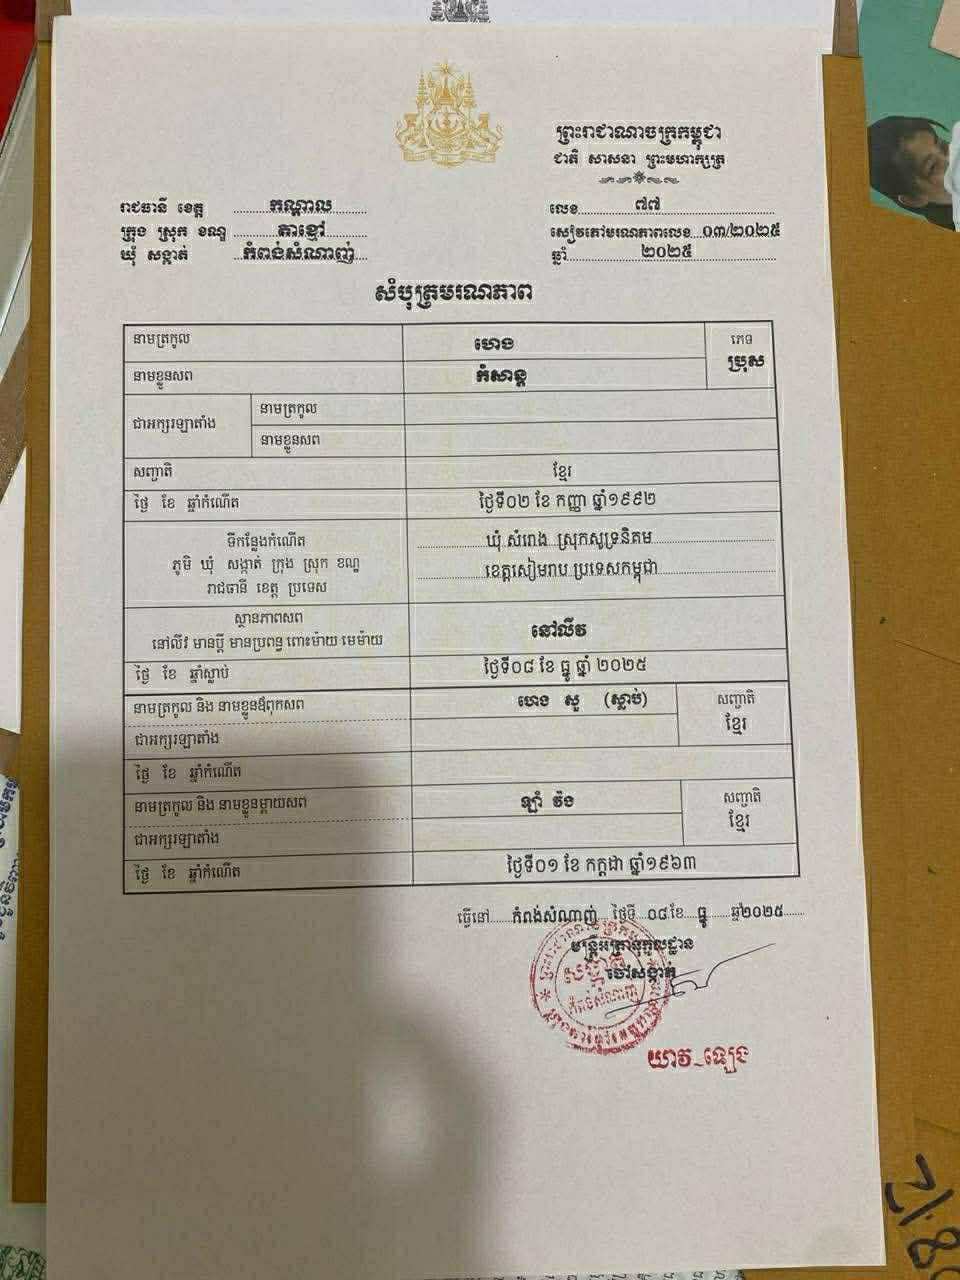 ព្រះរាជាណាចក្រកម្ពុជា
ជាតិ សាសនា ព្រះមហាក្សត្រ
រាជធានី ខេត្ត កណ្តាល
ក្រុង ស្រុក ខណ្ឌ តាខ្មៅ
ឃុំ សង្កាត់ កំពង់សំណាញ់
លេខ ៧៧
សៀវភៅមរណភាពលេខ ០៣/២០២៥
ឆ្នាំ ២០២៥
សំបុត្រមរណភាព
នាមត្រកូល ហេង
ភេទ
ប្រុស
នាមខ្លួនសព កំសាន្ត
ជាអក្សរឡាតាំង
នាមត្រកូល
នាមខ្លួនសព
សញ្ជាតិ ខ្មែរ
ថ្ងៃ ខែ ឆ្នាំកំណើត ថ្ងៃទី០២ ខែ កញ្ញា ឆ្នាំ១៩៩២
ទីកន្លែងកំណើត
ភូមិ ឃុំ សង្កាត់ ក្រុង ស្រុក ខណ្ឌ
រាជធានី ខេត្ត ប្រទេស
ឃុំ សំរោង ស្រុកសូទ្រនិគម
ខេត្តសៀមរាប ប្រទេសកម្ពុជា
ស្ថានភាពសព
នៅលីវ មានប្តី មានប្រពន្ធ ពោះម៉ាយ មេម៉ាយ
នៅលីវ
ថ្ងៃ ខែ ឆ្នាំស្លាប់ ថ្ងៃទី០៨ ខែ ធ្នូ ឆ្នាំ ២០២៥
នាមត្រកូល និង នាមខ្លួនឪពុកសព ហេង សួ (ស្លាប់)
សញ្ជាតិ
ខ្មែរ
ជាអក្សរឡាតាំង
ថ្ងៃ ខែ ឆ្នាំកំណើត
នាមត្រកូល និង នាមខ្លួនម្តាយសព ឡាំ វ៉ង
សញ្ជាតិ
ខ្មែរ
ជាអក្សរឡាតាំង
ថ្ងៃ ខែ ឆ្នាំកំណើត ថ្ងៃទី០១ ខែ កក្កដា ឆ្នាំ១៩៦៣
ធ្វើនៅ កំពង់សំណាញ់ ថ្ងៃទី ០៨ ខែ ធ្នូ ឆ្នាំ២០២៥
មន្ត្រីអត្រានុកូលដ្ឋាន
ចៅសង្កាត់
សង្កាត់
កំពង់សំណាញ់
យាវ ឡេង